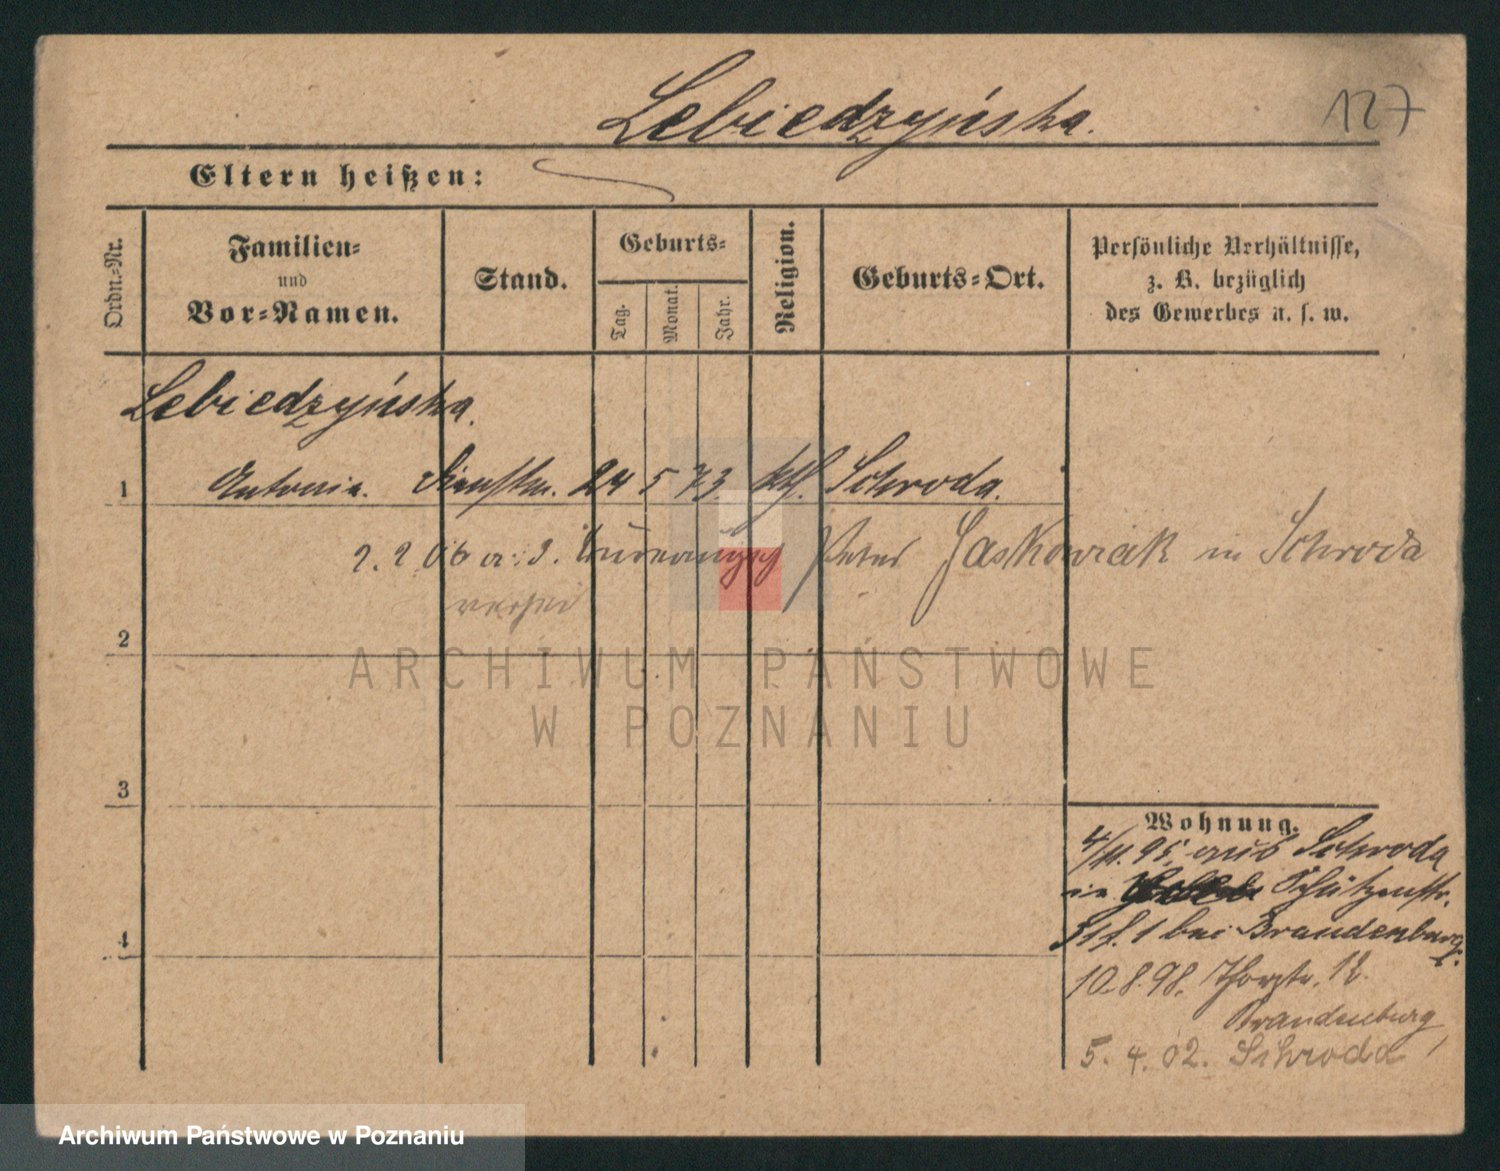 Lebiedzyńska.
127
Eltern heißen:
Ordn.-Nr.
Familien-
und
Vor-Namen.
Stand.
Geburts-
Tag.
Monat.
Jahr.
Religion.
Geburts-Ort.
Persönliche Verhältnisse,
z. B. bezüglich
des Gewerbes u. s. w.
Lebiedzyńska.
1 Antonia. Dienstm. 24 5 73 kth. Schroda.
2. 2 06 a. d. Jaskowiak in Schroda
2
3
4
ARCHIWUM PAŃSTWOWE
W POZNANIU
Wohnung.
4/11. 95. aus Schroda
in Schützenstr.
31 f. 1 bei Brandenburg.
10.8.98. Thorstr. 12.
Brandenburg,
5. 4. 02. Schroda
Archiwum Państwowe w Poznaniu